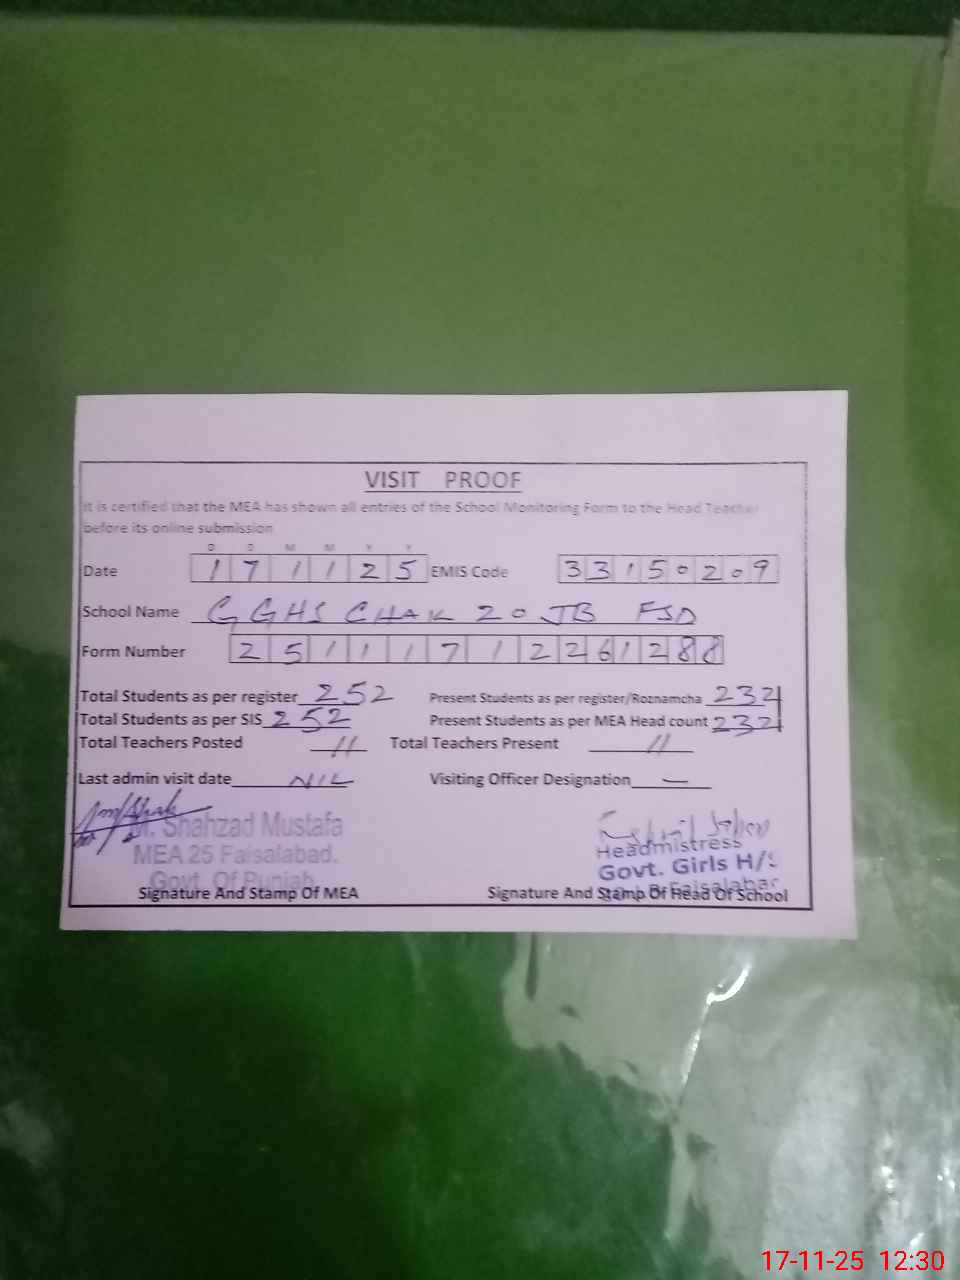 VISIT PROOF
It is certified that the MEA has shown all entries of the School Monitoring Form to the Head Teacher
before its online submission
D D M M Y Y
Date 1 7 1 1 2 5 EMIS Code 3 3 1 5 0 2 0 9
School Name GGHS CHAK 20 JB FSD
Form Number 2 5 1 1 1 7 1 2 2 6 1 2 8 8
Total Students as per register 252 Present Students as per register/Roznamcha 232
Total Students as per SIS 252 Present Students as per MEA Head count 232
Total Teachers Posted 11 Total Teachers Present 11
Last admin visit date NIL Visiting Officer Designation —
Shahzad Mustafa
MEA 25 Faisalabad.
Govt. Of Punjab
Signature And Stamp Of MEA
Headmistress
Govt. Girls H/S
Faisalabad
Signature And Stamp Of Head Of School
17-11-25 12:30